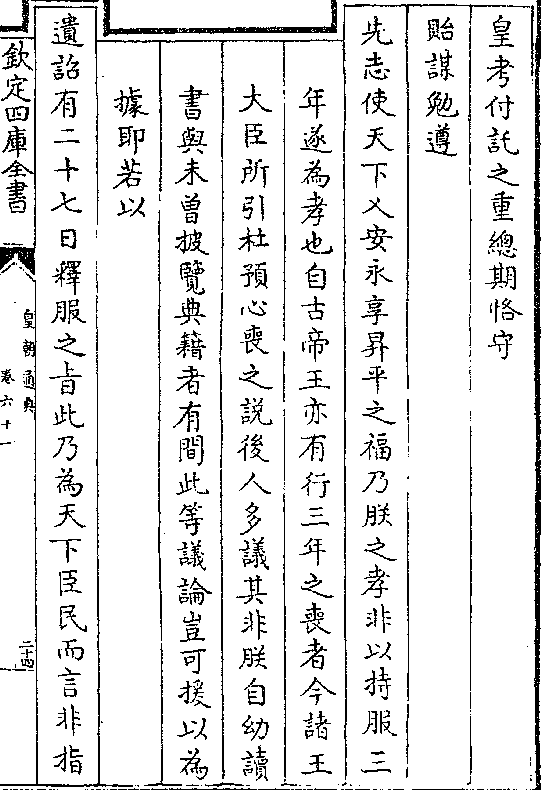 皇考付託之重總期恪守
貽謀勉遵
先志使天下乂安永享昇平之福乃朕之孝非以持服三
年遂為孝也自古帝王亦有行三年之喪者今諸王
大臣所引杜預心喪之説後人多議其非朕自幼讀
書與未曾披覽典籍者有間此等議論豈可援以為
據即若以
遺詔有二十七日釋服之旨此乃為天下臣民而言非指
欽定四庫全書
皇朝通典
卷六十一
二十四